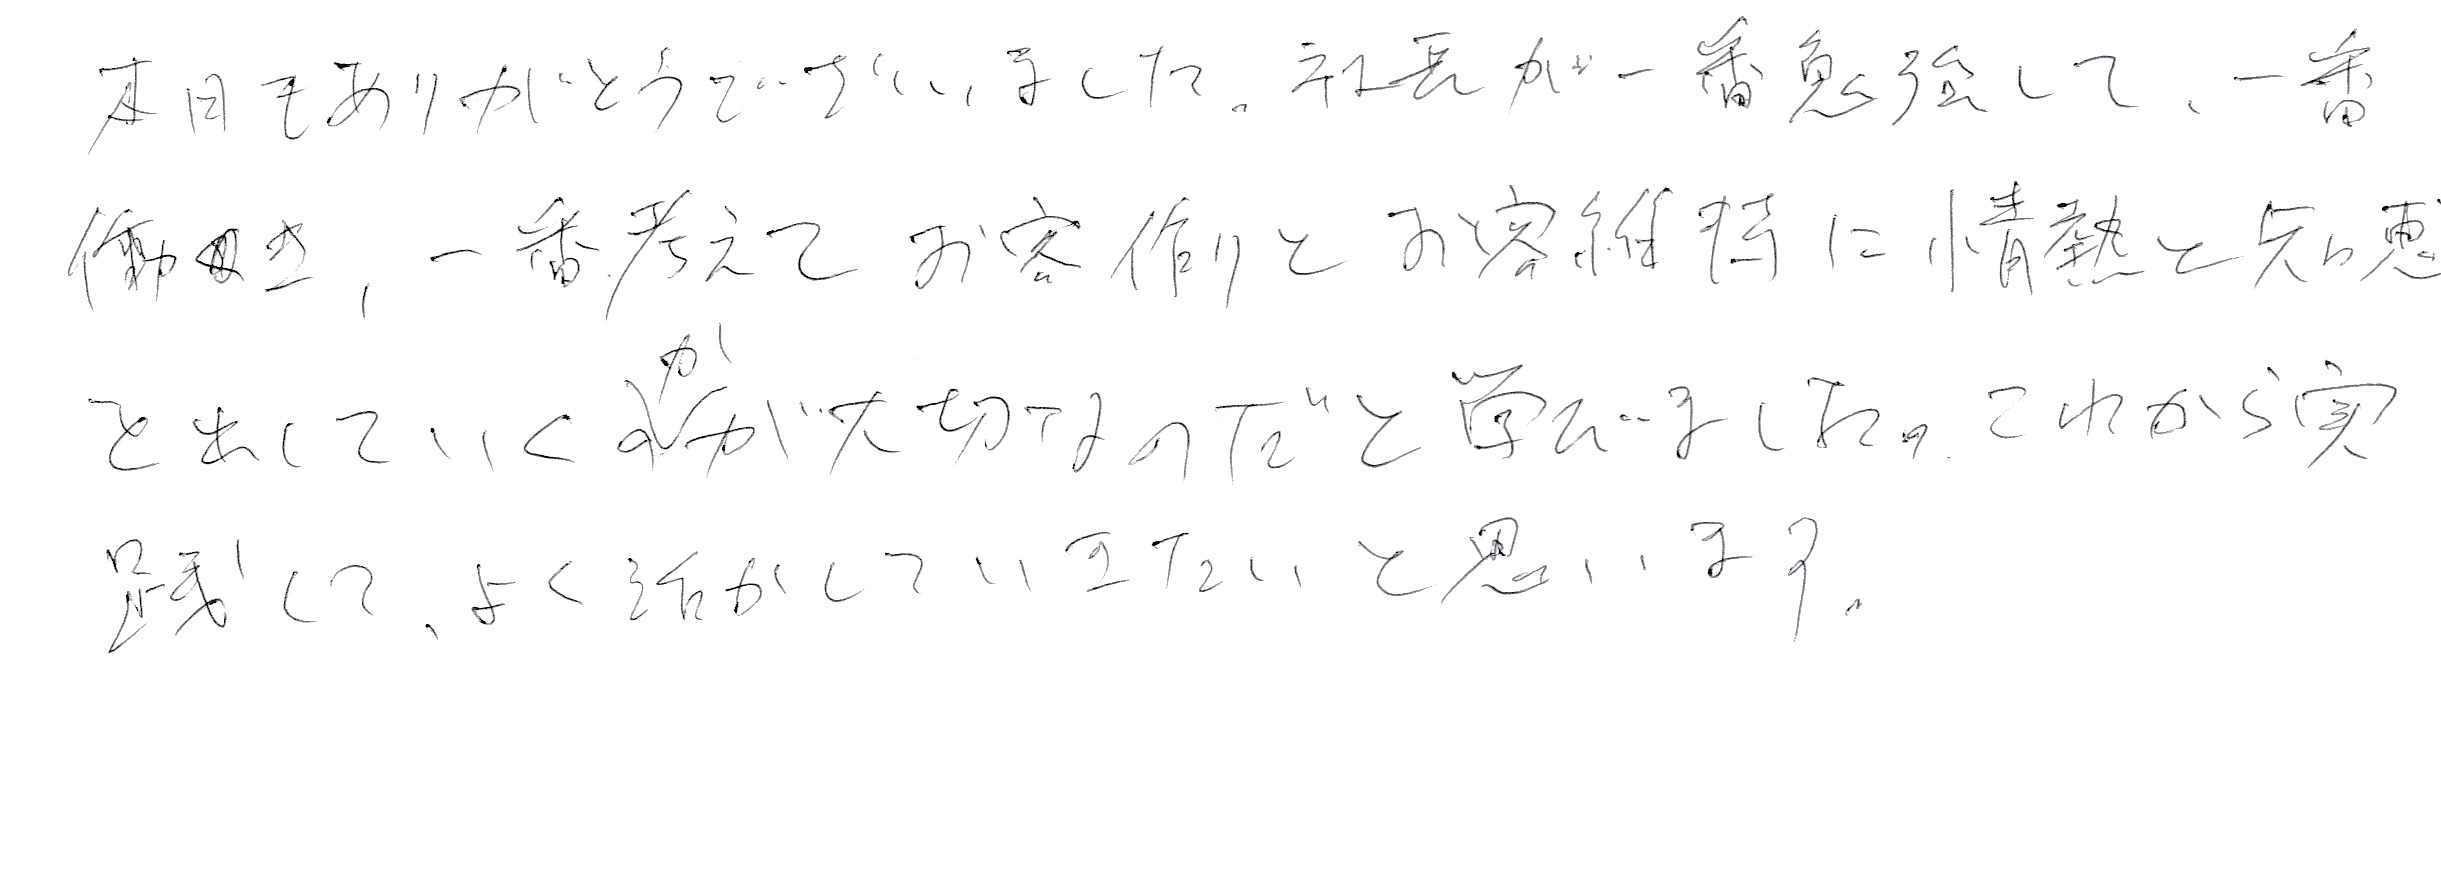 本日もありがとうございました。社長が一番勉強して、一番
働き、一番考えてお客作りとお客維持に情熱と知恵
と出していくのが大切なのだと学びました。これから実
践して、よく活かしていきたいと思います。